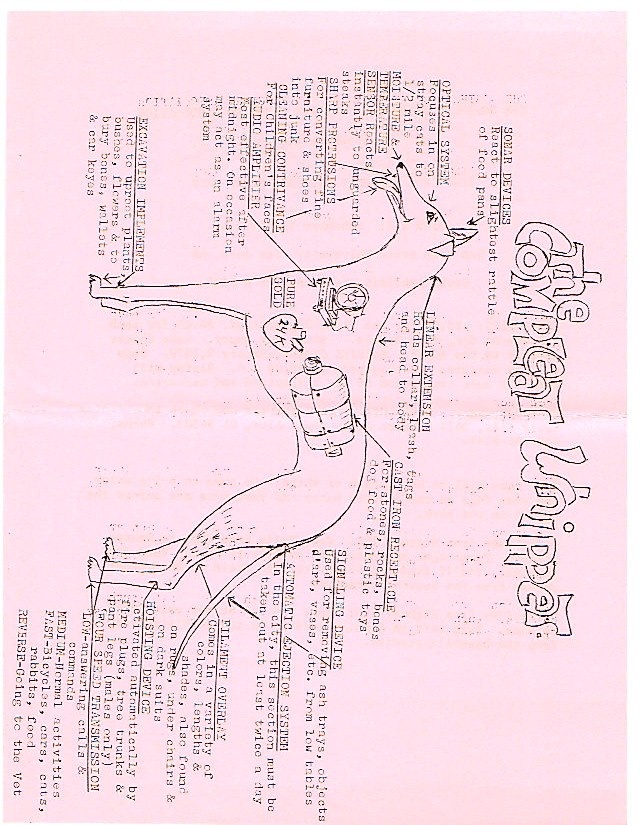 The
COMPLEAT WHIPPET
SONAR DEVICES
React to slightest rattle
of food pans
OPTICAL SYSTEM
Focuses in on
stray cats to
1/2 mile
MOISTURE &
TEMPERATURE
SENSOR Reacts
instantly to unguarded
steaks
SHARP PROTRUSIONS
For converting fine
furniture & shoes
into junk
CLEANING CONTRIVANCE
For Children's faces
AUDIO AMPLIFIER
Most effective after
midnight. On occasion
may act as an alarm
system
EXCAVATION IMPLEMENTS
Used to uproot plants
bushes, flowers & to
bury bones, wallets
& car keyes
LINEAR EXTENSION
Holds collar, leash, tags
and head to body
PURE
GOLD
24K
CAST IRON RECEPTICLE
For stones, rocks, bones
dog food & plastic toys
SIGNALING DEVICE
Used for removing ash trays, objects
d'art, vases, etc. from low tables
AUTOMATIC EJECTION SYSTEM
In the city, this section must be
taken out at least twice a day
FILAMENT OVERLAY
Comes in a variety of
colors, lengths &
shades, also found
on rugs, under chairs &
on dark suits
HOISTING DEVICE
Activated automatically by
fire plugs, tree trunks &
pant legs (males only)
FOUR SPEED TRANSMISSION
LOW-answering calls &
commands
MEDIUM-Normal activities
FAST-Bicycles, cars, cats,
rabbits, food
REVERSE-Going to the Vet